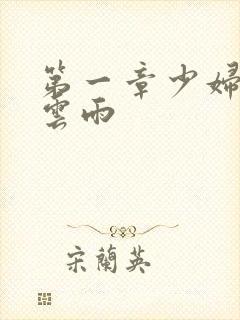 第一章少婦
雲雨
宋蘭英